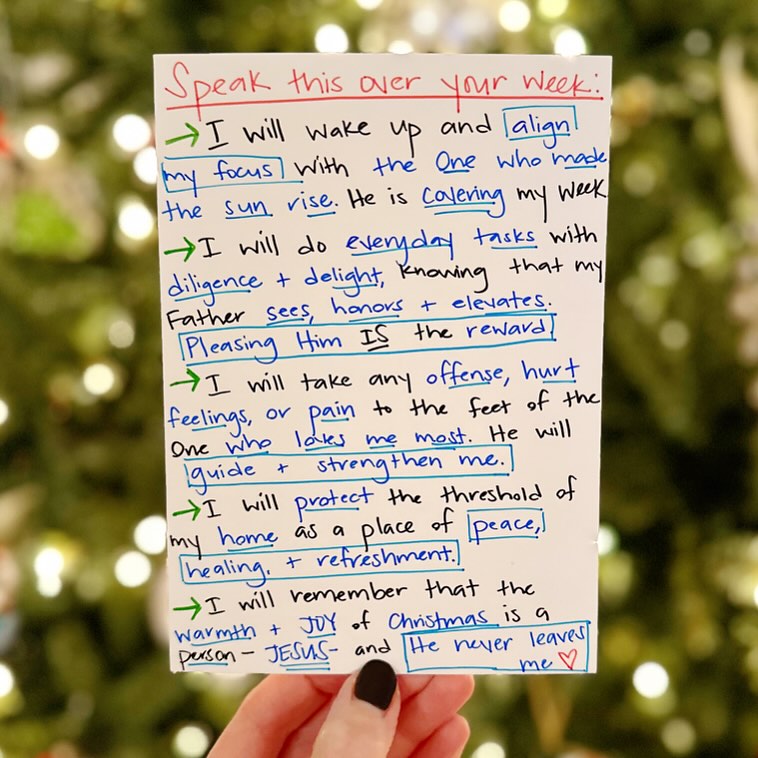 Speak this over your week:
→ I will wake up and align
my focus with the One who made
the sun rise. He is covering my week
→ I will do everyday tasks with
diligence + delight, knowing that my
Father sees, honors + elevates.
Pleasing Him IS the reward
→ I will take any offense, hurt
feelings, or pain to the feet of the
One who loves me most. He will
guide + strengthen me.
→ I will protect the threshold of
my home as a place of peace,
healing, + refreshment.
→ I will remember that the
warmth + JOY of Christmas is a
person - JESUS - and He never leaves
me ♡